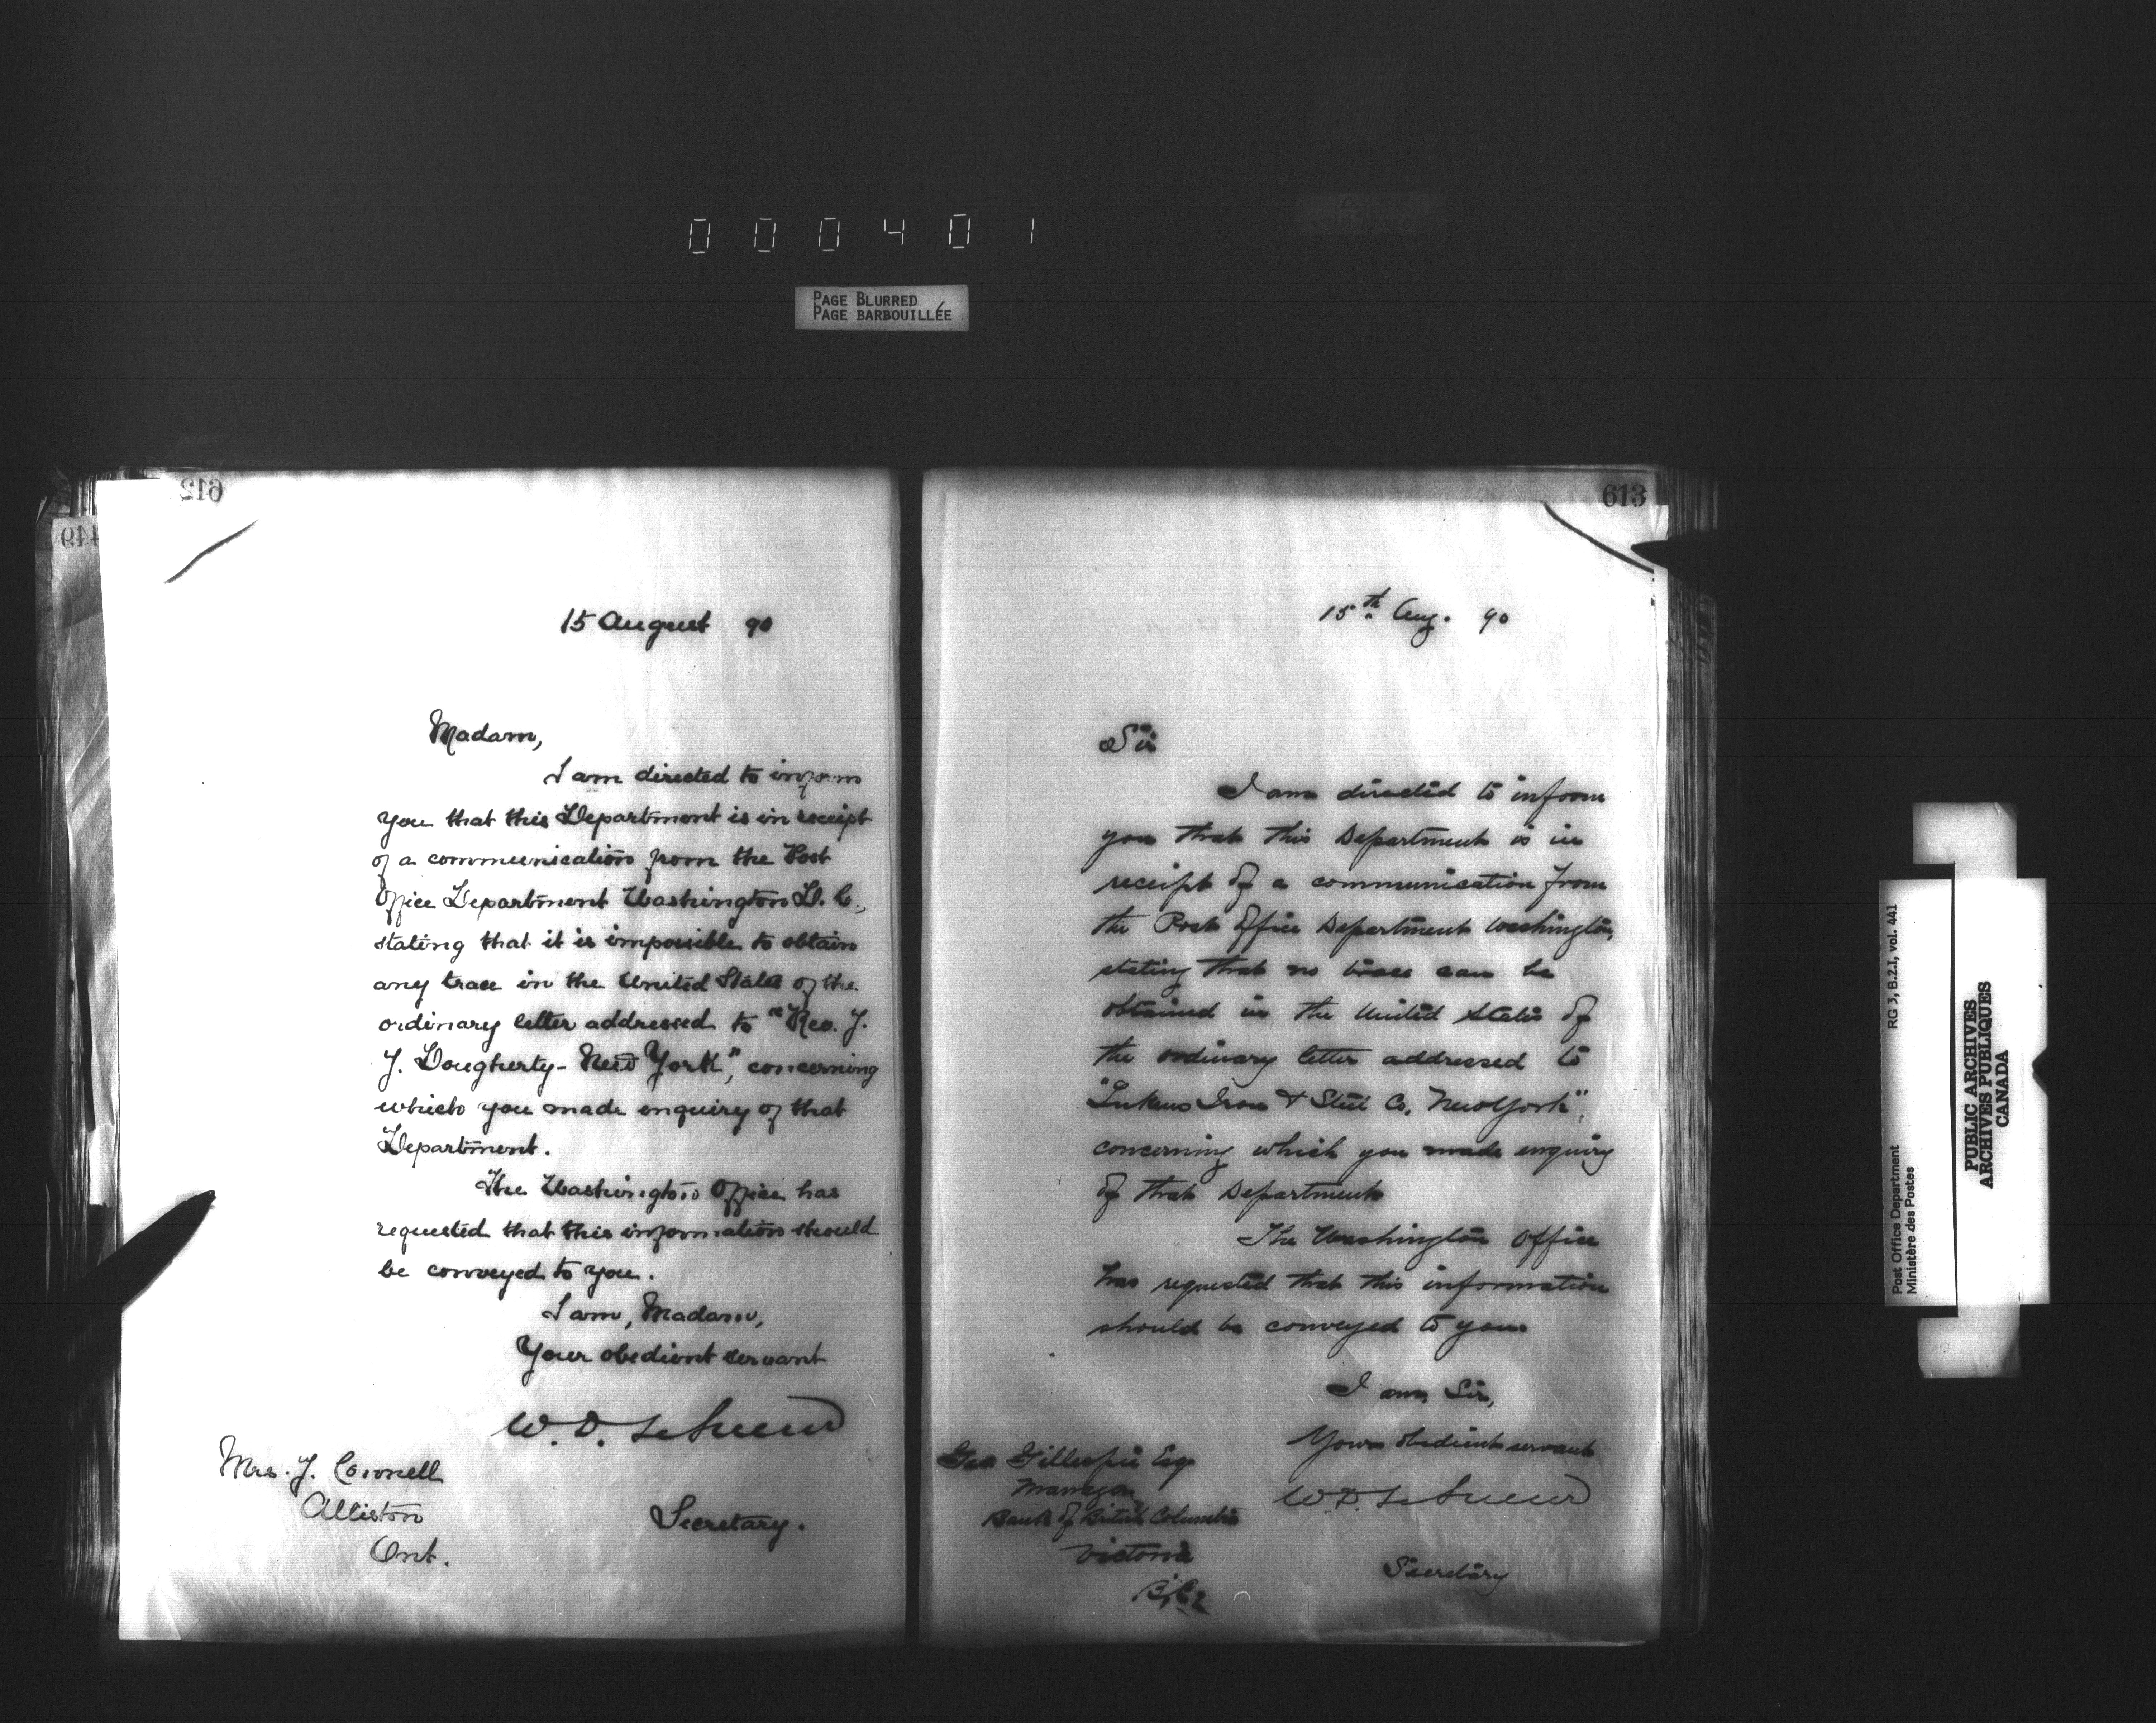 000401
PAGE BLURRED
PAGE BARBOUILLÉE
612
449
15 August 90
Madam,
I am directed to inform
you that this Department is in receipt
of a communication from the Post
Office Department Washington D. C.,
stating that it is impossible to obtain
any trace in the United States of the
ordinary letter addressed to "Rev. J.
J. Dougherty - New York", concerning
which you made enquiry of that
Department.
The Washington Office has
requested that this information should
be conveyed to you.
I am, Madam,
Your obedient servant
W. D. LeSueur
Secretary.
Mrs. J.
Alliston
Ont.
613
15th Aug. 90
Sir
I am directed to inform
you that this Department is in
receipt of a communication from
the Post Office Department Washington,
stating that no trace can be
obtained in the United States of
the ordinary letter addressed to
"Lukens Iron & Steel Co. New York",
concerning which you made enquiry
of that Department
The Washington Office
has requested that this information
should be conveyed to you
I am, Sir,
Your obedient servant
W. D. LeSueur
Secretary
Geo Gillespie Esq
Manager
Bank of British Columbia
Victoria
B.C.
RG 3, B.2.1, vol. 441
Post Office Department
Ministère des Postes
PUBLIC ARCHIVES
ARCHIVES PUBLIQUES
CANADA